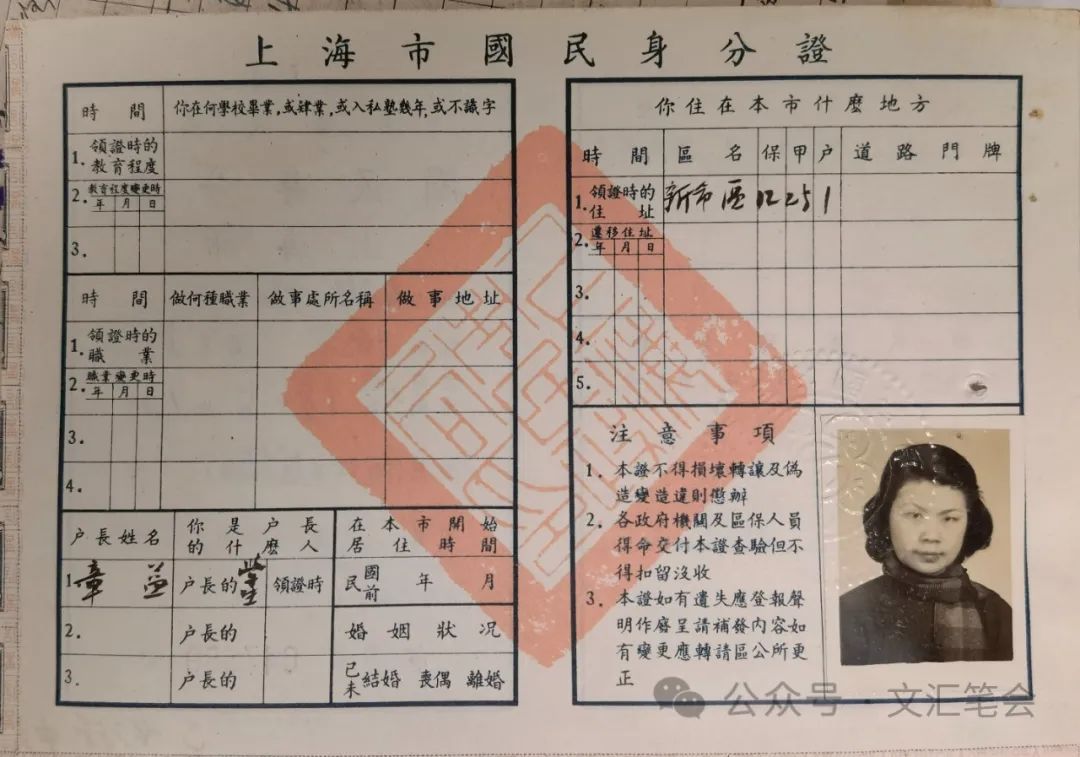 上海市國民身分證
時間 你在何學校畢業,或肄業,或入私塾幾年,或不識字
1. 領證時的教育程度
2. 教育程度變更時
年 月 日
3.
時間 做何種職業 做事處所名稱 做事地址
1. 領證時的職業
2. 職業變更時
年 月 日
3.
4.
户長姓名 你是户長的什麼人 在本市開始居住時間
1. 章益 户長的 領證時 民國前 年 月
2. 户長的 婚姻狀况
3. 户長的 已未結婚 喪偶 離婚
你住在本市什麼地方
時間 區名 保 甲 户 道路門牌
1. 領證時的住址 新市區 12 25 1
2. 遷移住址
年 月 日
3.
4.
5.
注意事項
1. 本證不得損壞轉讓及偽
造變造違則懲辦
2. 各政府機關及區保人員
得命交付本證查驗但不
得扣留沒收
3. 本證如有遺失應登報聲
明作廢呈請補發内容如
有變更應轉請區公所更
正
公众号 文汇笔会